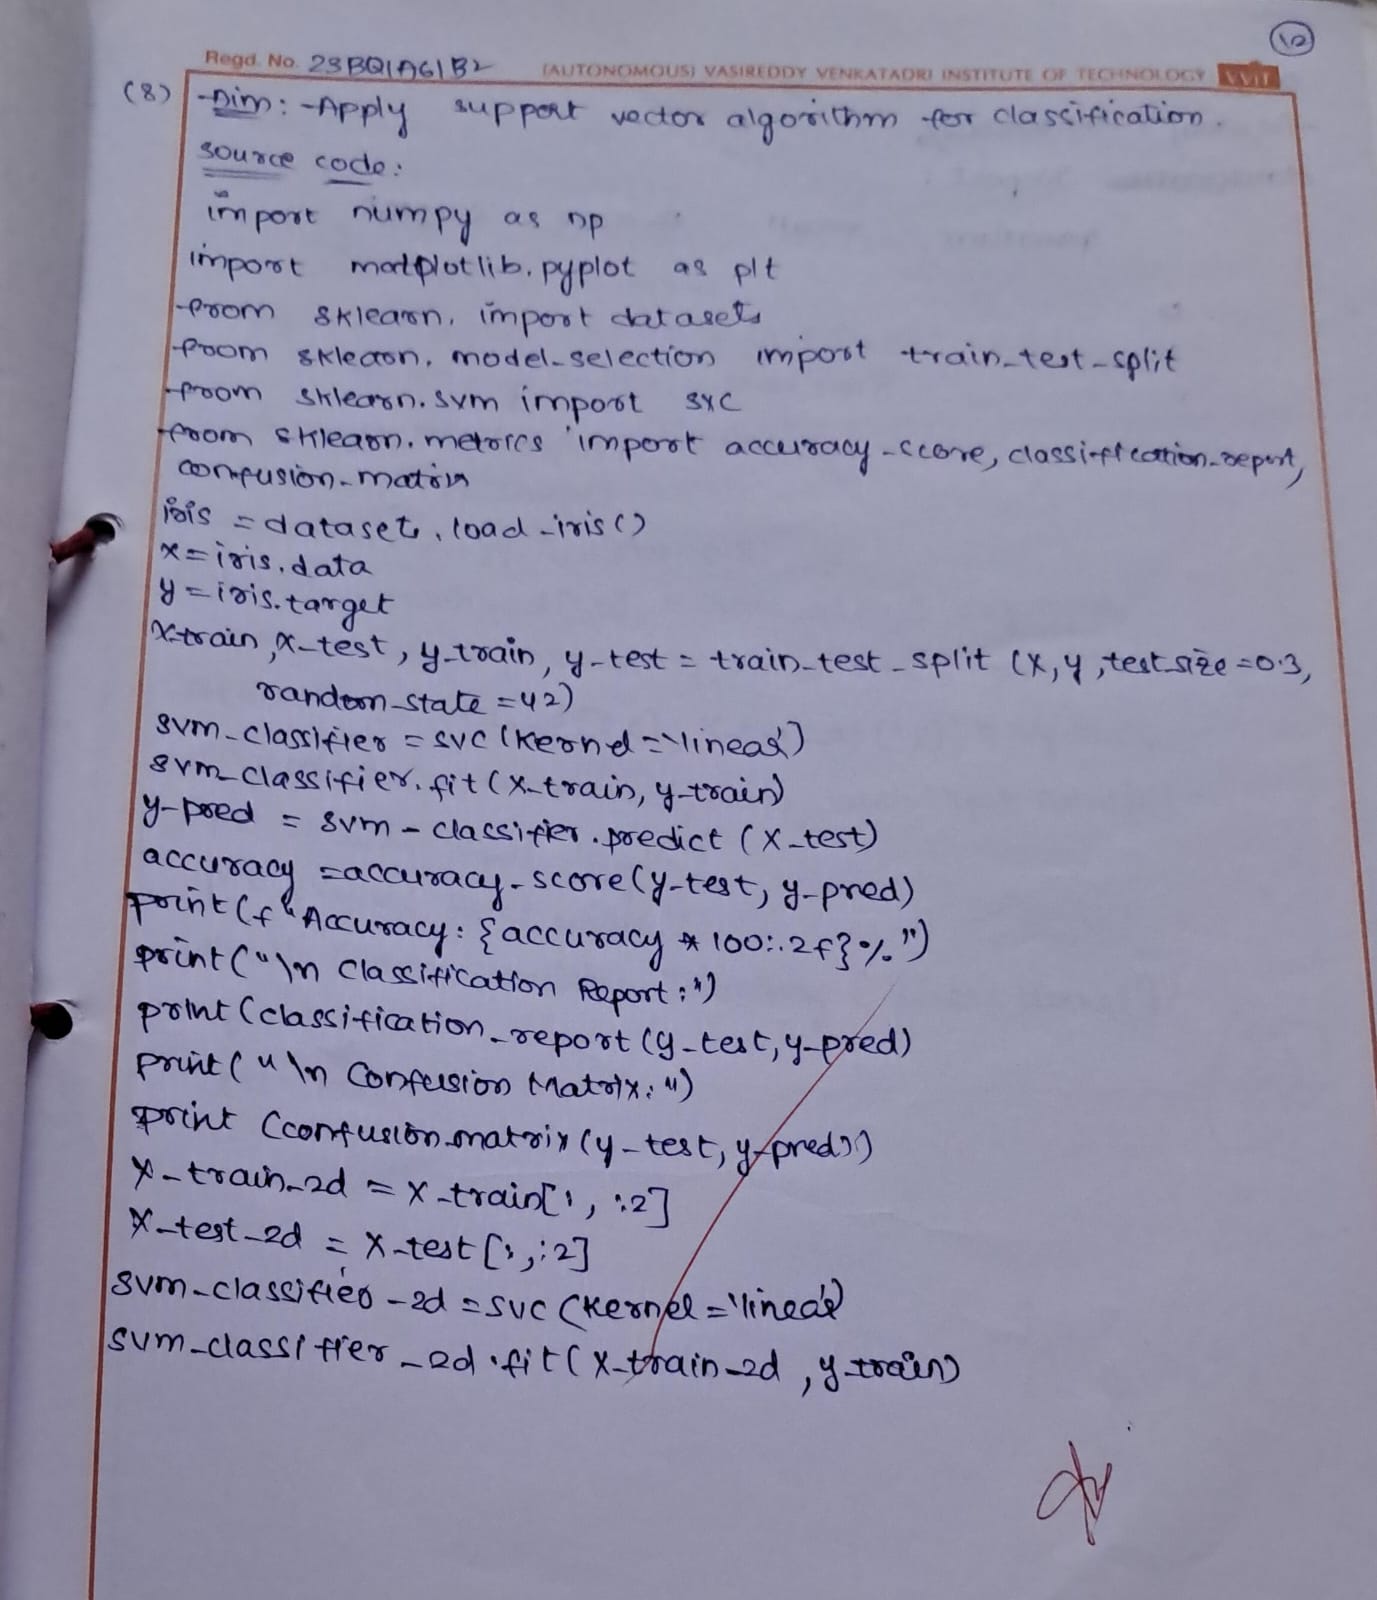 12
Regd. No. 23BQ1A61B2 (AUTONOMOUS) VASIREDDY VENKATADRI INSTITUTE OF TECHNOLOGY VVIT
(8) Aim: Apply support vector algorithm for classification.
source code:
import numpy as np
import matplotlib.pyplot as plt
from sklearn. import datasets
from sklearn. model_selection import train_test_split
from sklearn.svm import SVC
from sklearn.metrics import accuracy_score, classification_report,
confusion_matrix
iris = datasets.load_iris()
x = iris.data
y = iris.target
X_train, X_test, y_train, y_test = train_test_split (X, y, test_size = 0.3,
random_state = 42)
svm_classifier = SVC (kernel = 'linear')
svm_classifier.fit (X_train, y_train)
y_pred = svm_classifier.predict (X_test)
accuracy = accuracy_score(y_test, y_pred)
print(f"Accuracy: {accuracy * 100:.2f}%")
print("\n Classification Report:")
print(classification_report(y_test, y_pred)
print("\n Confusion Matrix:")
print (confusion_matrix(y_test, y_pred))
X_train_2d = X_train[:, :2]
X_test_2d = X_test[:, :2]
svm_classifier_2d = SVC (kernel = 'linear')
svm_classifier_2d.fit(X_train_2d, y_train)